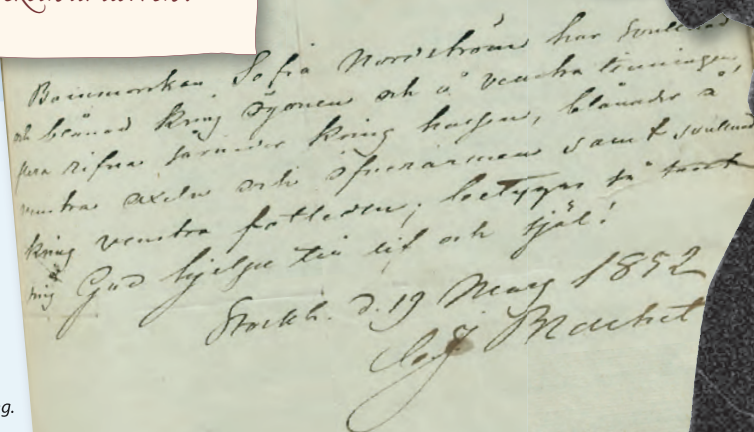 Barnmorskan Sofia Nordström har svullnad
och blånad kring ögonen och å venstra tinningen,
flera rifna sårnader kring halsen, blånader å
venstra axeln och öfverarmen samt svullnad
kring venstra fotleden; betygas så sant
mig Gud hjelpe till lif och själ!
Stockh. d. 19 Mars 1852
g.